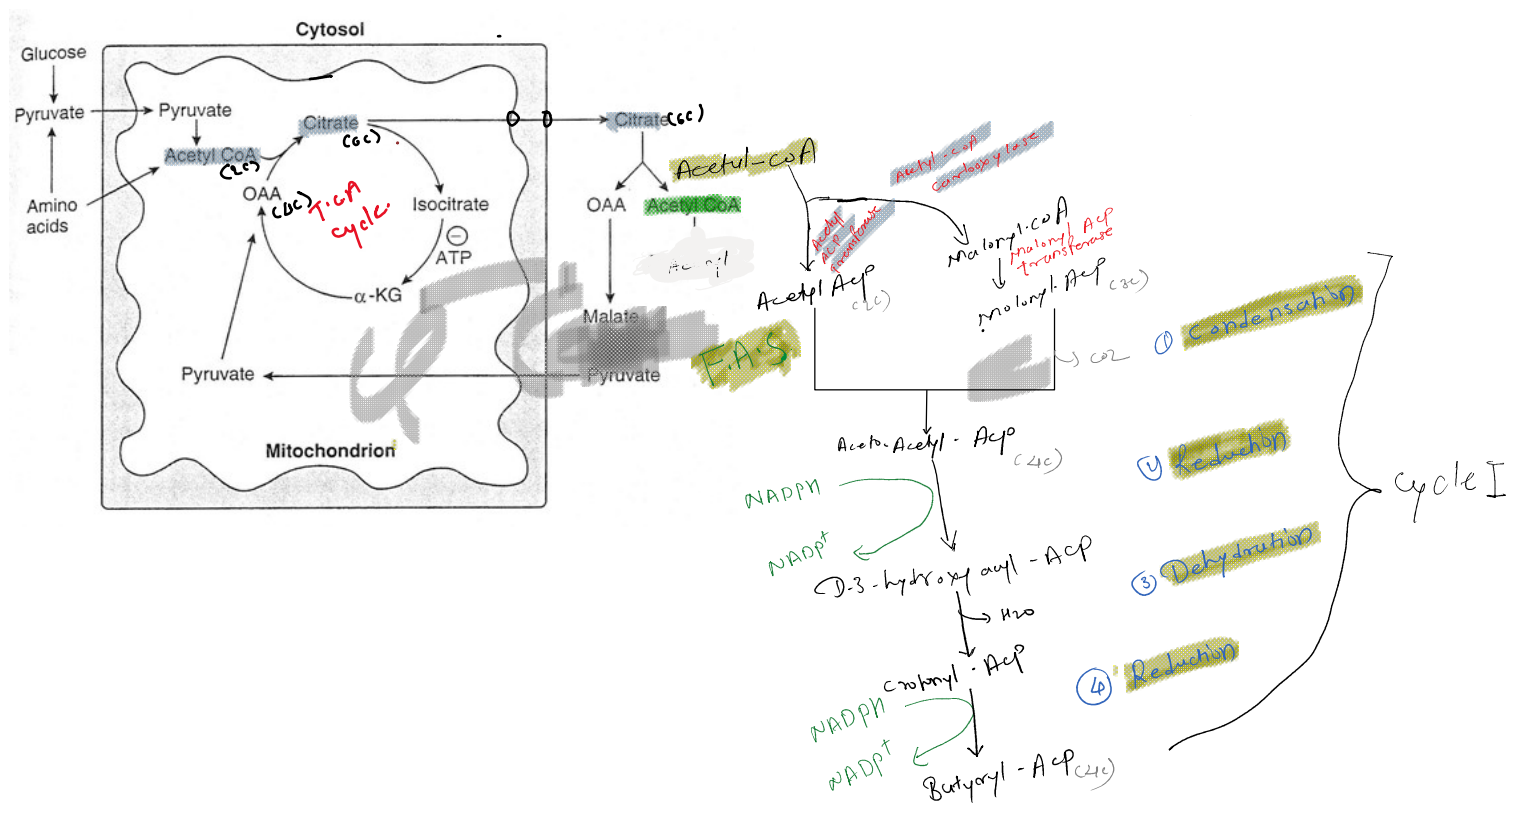 Cytosol
Glucose
Pyruvate
Pyruvate
Acetyl CoA
(2C)
Citrate
(6C)
OAA
T.CA
cycle.
Isocitrate
ATP
α-KG
Amino
acids
Pyruvate
Mitochondrion
Citrate (6C)
OAA
Acetyl CoA
Malate
Pyruvate
F.A.S
Acetyl-coA
Acetyl-coA
Carboxylase
Acetyl
ACP
transferase
Malonyl-coA
Malonyl ACP
transferase
Acetyl ACP
(2C)
Malonyl-ACP (3C)
CO2
Aceto-Acetyl-ACP
(4C)
NADPH
NADP+
D-3-hydroxy acyl-ACP
H2O
Crotonyl-ACP
NADPH
NADP+
Butyryl-ACP (4C)
① Condensation
② Reduction
③ Dehydration
④ Reduction
Cycle I